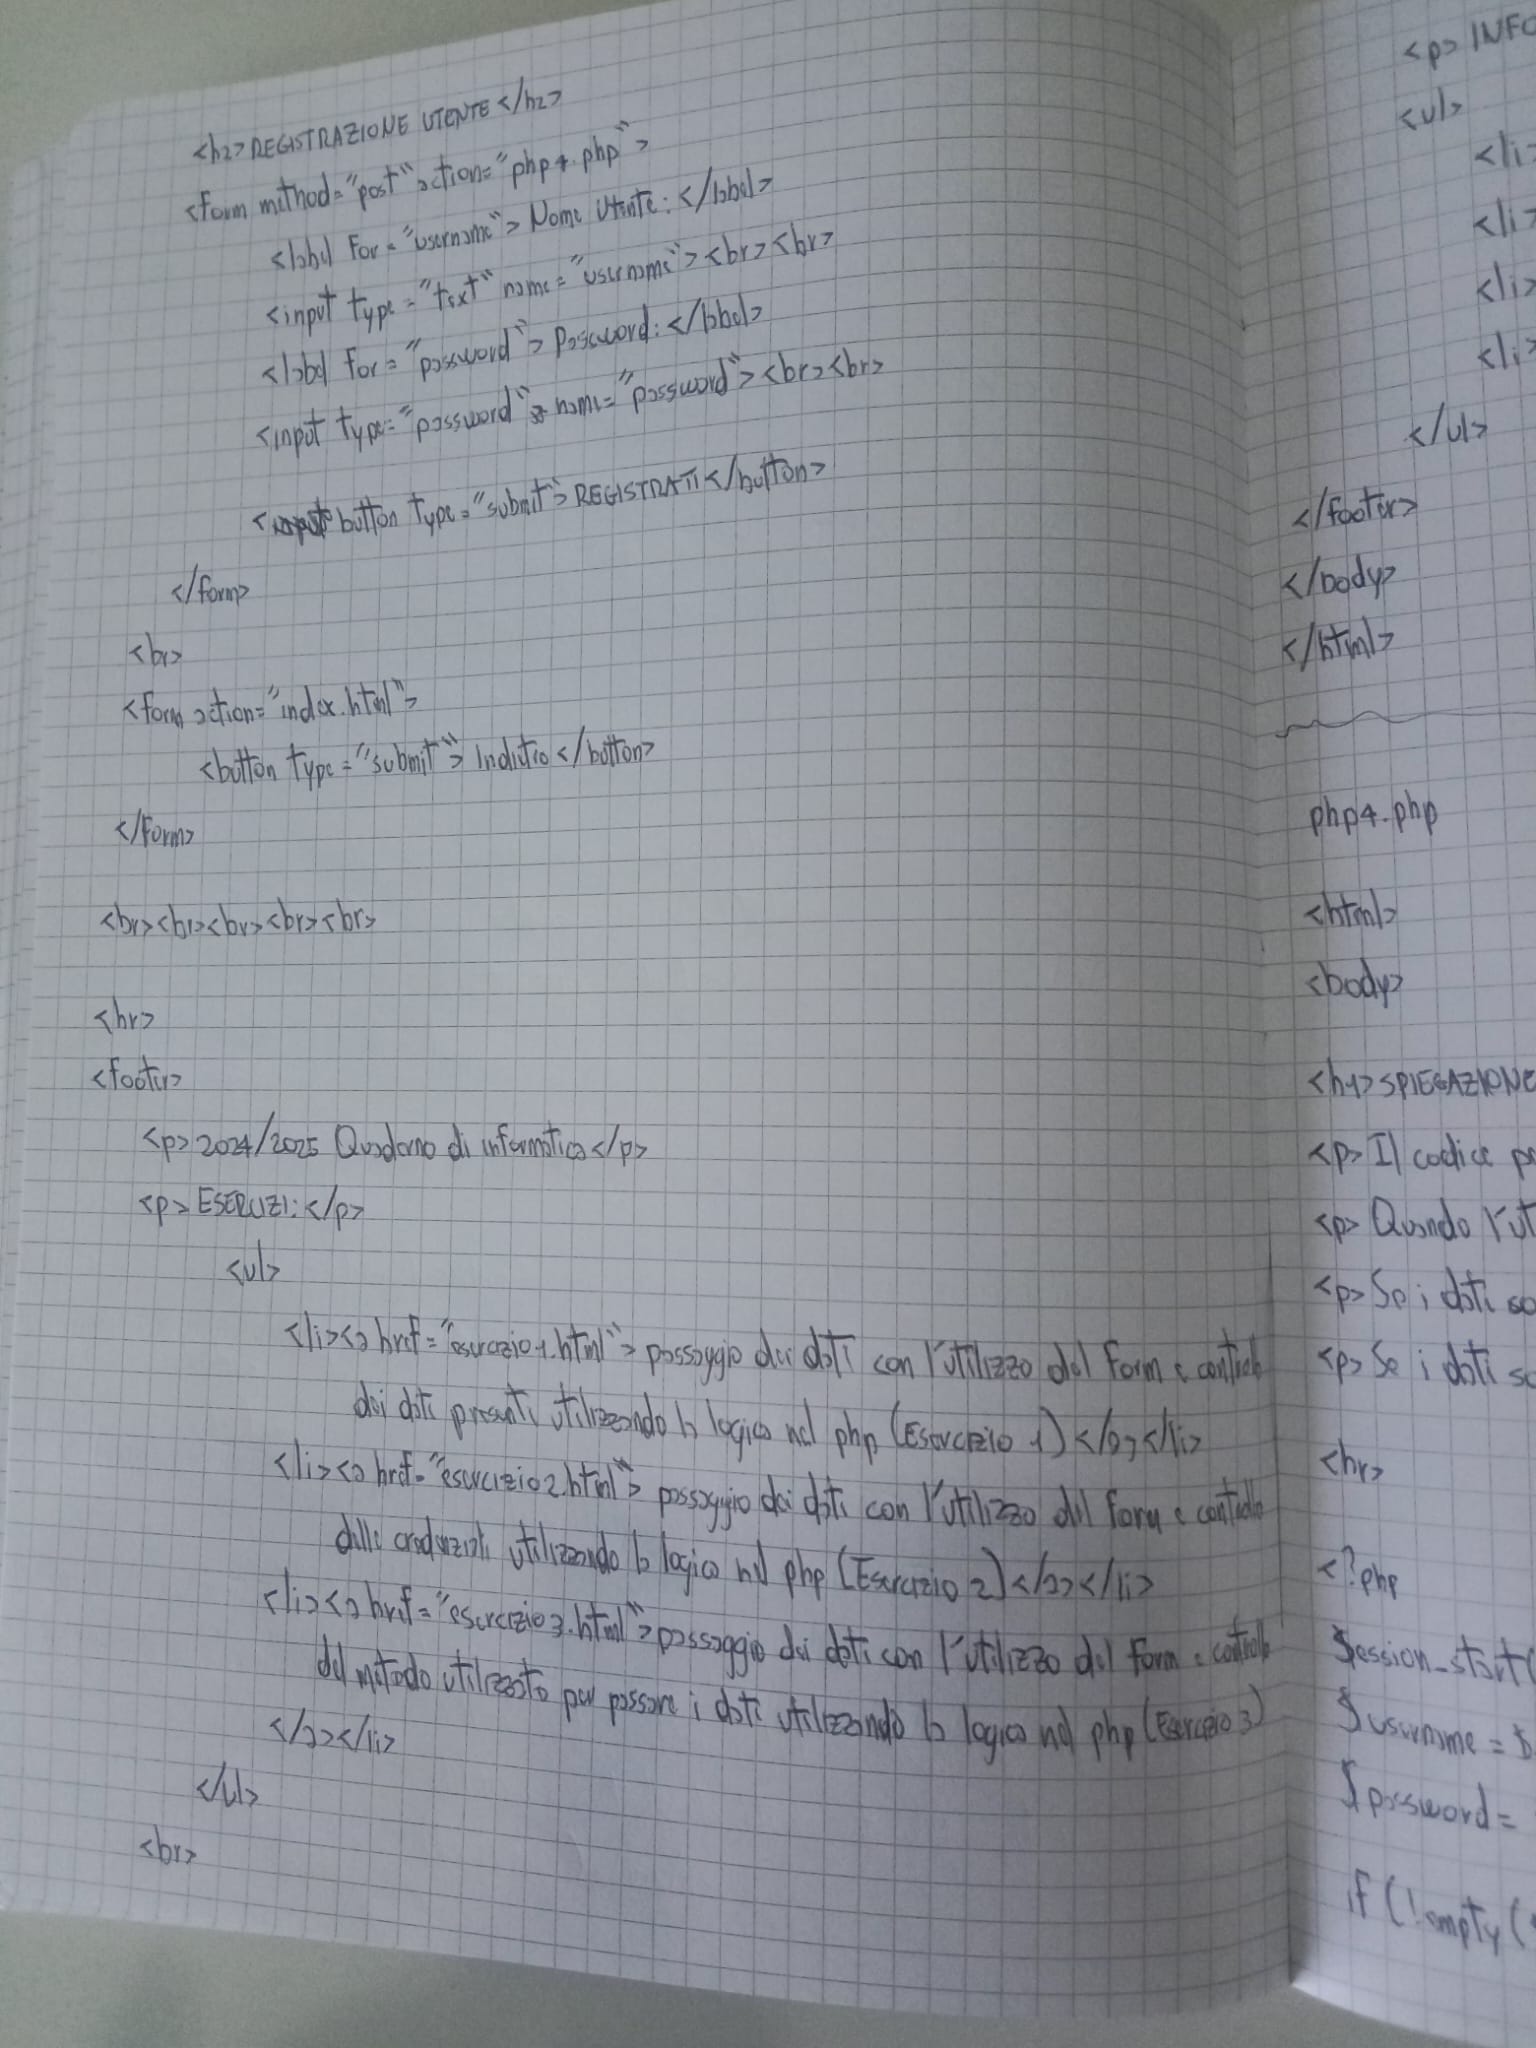 <h2>REGISTRAZIONE UTENTE</h2>
<form method="post" action="php4.php">
<label for="username">Nome Utente:</label>
<input type="text" name="username"><br><br>
<label for="password">Password:</label>
<input type="password" name="password"><br><br>
<button type="submit">REGISTRATI</button>
</form>
<br>
<form action="index.html">
<button type="submit">Indietro</button>
</form>
<br><br><br><br><br>
<hr>
<footer>
<p>2024/2025 Quaderno di informatica</p>
<p>ESERCIZI:</p>
<ul>
<li><a href="esercizio1.html">passaggio dei dati con l'utilizzo del form e controllo
dei dati presenti utilizzando la logica nel php (Esercizio 1)</a></li>
<li><a href="esercizio2.html">passaggio dei dati con l'utilizzo del form e controllo
delle credenziali utilizzando la logica nel php (Esercizio 2)</a></li>
<li><a href="esercizio3.html">passaggio dei dati con l'utilizzo del form e controllo
del metodo utilizzato per passare i dati utilizzando la logica nel php (Esercizio 3)
</a></li>
</ul>
<br>
<p>INFO
<ul>
<li>
<li>
<li>
<li>
</ul>
</footer>
</body>
</html>
php4.php
<html>
<body>
<h1>SPIEGAZIONE
<p>Il codice
<p>Quando l'ut
<p>Se i dati so
<p>Se i dati so
<hr>
<?php
session_start(
$username = $
$password =
if(!empty(